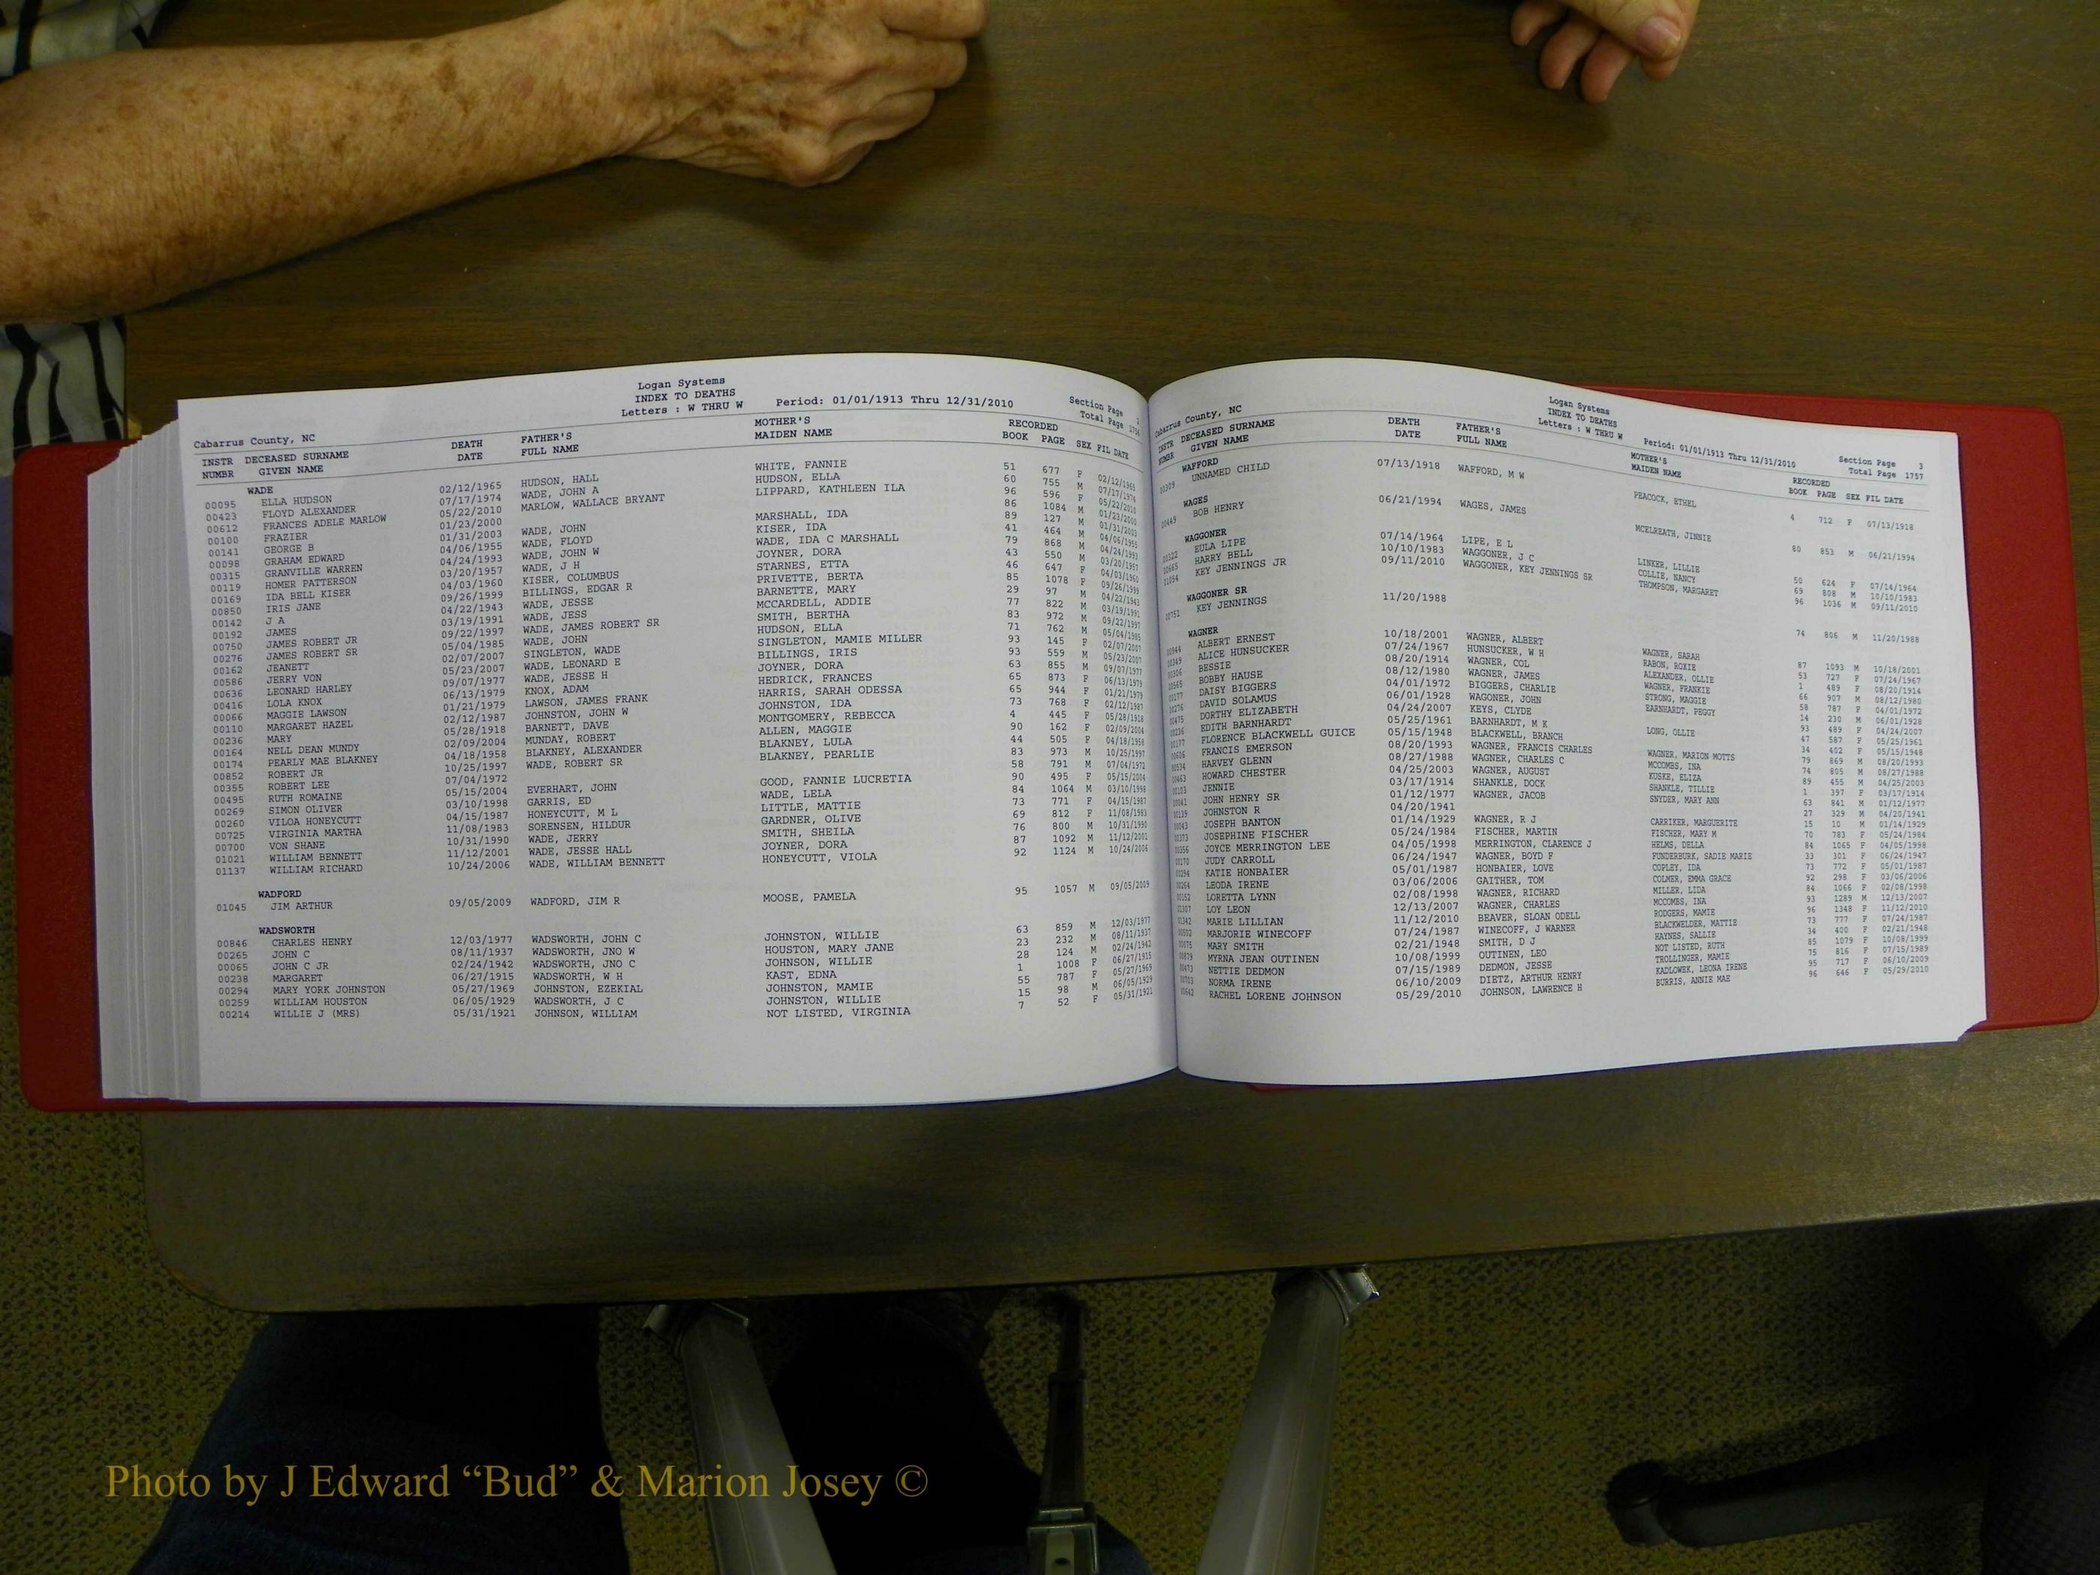 Logan Systems
INDEX TO DEATHS
Letters : W THRU W Period: 01/01/1913 Thru 12/31/2010 Section Page
Cabarrus County, NC Total Page 1756
INSTR DECEASED SURNAME DEATH FATHER'S MOTHER'S RECORDED
NUMBR GIVEN NAME DATE FULL NAME MAIDEN NAME BOOK PAGE SEX FIL DATE
WADE
00095 ELLA HUDSON 02/12/1965 HUDSON, HALL WHITE, FANNIE 51 677 F 02/12/1965
00423 FLOYD ALEXANDER 07/17/1974 WADE, JOHN A HUDSON, ELLA 60 755 M 07/17/1974
00612 FRANCES ADELE MARLOW 05/22/2010 MARLOW, WALLACE BRYANT LIPPARD, KATHLEEN ILA 96 596 F 05/22/2010
00100 FRAZIER 01/23/2000 86 1084 M 01/23/2000
00141 GEORGE B 01/31/2003 WADE, JOHN MARSHALL, IDA 89 127 M 01/31/2003
00098 GRAHAM EDWARD 04/06/1955 WADE, FLOYD KISER, IDA 41 464 M 04/06/1955
00315 GRANVILLE WARREN 04/24/1993 WADE, JOHN W WADE, IDA C MARSHALL 79 868 M 04/24/1993
00119 HOMER PATTERSON 03/20/1957 WADE, J H JOYNER, DORA 43 550 M 03/20/1957
00169 IDA BELL KISER 04/03/1960 KISER, COLUMBUS STARNES, ETTA 46 647 F 04/03/1960
00850 IRIS JANE 09/26/1999 BILLINGS, EDGAR R PRIVETTE, BERTA 85 1078 F 09/26/1999
00142 J A 04/22/1943 WADE, JESSE BARNETTE, MARY 29 97 M 04/22/1943
00192 JAMES 03/19/1991 WADE, JESS MCCARDELL, ADDIE 77 822 M 03/19/1991
00750 JAMES ROBERT JR 09/22/1997 WADE, JAMES ROBERT SR SMITH, BERTHA 83 972 M 09/22/1997
00276 JAMES ROBERT SR 05/04/1985 WADE, JOHN HUDSON, ELLA 71 762 M 05/04/1985
00162 JEANETT 02/07/2007 SINGLETON, WADE SINGLETON, MAMIE MILLER 93 145 F 02/07/2007
00586 JERRY VON 05/23/2007 WADE, LEONARD E BILLINGS, IRIS 93 559 M 05/23/2007
00636 LEONARD HARLEY 09/07/1977 WADE, JESSE H JOYNER, DORA 63 855 M 09/07/1977
00416 LOLA KNOX 06/13/1979 KNOX, ADAM HEDRICK, FRANCES 65 873 F 06/13/1979
00066 MAGGIE LAWSON 01/21/1979 LAWSON, JAMES FRANK HARRIS, SARAH ODESSA 65 944 F 01/21/1979
00110 MARGARET HAZEL 02/12/1987 JOHNSTON, JOHN W JOHNSTON, IDA 73 768 F 02/12/1987
00236 MARY 05/28/1918 BARNETT, DAVE MONTGOMERY, REBECCA 4 445 F 05/28/1918
00164 NELL DEAN MUNDY 02/09/2004 MUNDAY, ROBERT ALLEN, MAGGIE 90 162 F 02/09/2004
00174 PEARLY MAE BLAKNEY 04/18/1958 BLAKNEY, ALEXANDER BLAKNEY, LULA 44 505 F 04/18/1958
00852 ROBERT JR 10/25/1997 WADE, ROBERT SR BLAKNEY, PEARLIE 83 973 M 10/25/1997
00355 ROBERT LEE 07/04/1972 58 791 M 07/04/1972
00495 RUTH ROMAINE 05/15/2004 EVERHART, JOHN GOOD, FANNIE LUCRETIA 90 495 F 05/15/2004
00269 SIMON OLIVER 03/10/1998 GARRIS, ED WADE, LELA 84 1064 M 03/10/1998
00260 VILOA HONEYCUTT 04/15/1987 HONEYCUTT, M L LITTLE, MATTIE 73 771 F 04/15/1987
00725 VIRGINIA MARTHA 11/08/1983 SORENSEN, HILDUR GARDNER, OLIVE 69 812 F 11/08/1983
00700 VON SHANE 10/31/1990 WADE, JERRY SMITH, SHEILA 76 800 M 10/31/1990
01021 WILLIAM BENNETT 11/12/2001 WADE, JESSE HALL JOYNER, DORA 87 1092 M 11/12/2001
01137 WILLIAM RICHARD 10/24/2006 WADE, WILLIAM BENNETT HONEYCUTT, VIOLA 92 1124 M 10/24/2006
WADFORD
01045 JIM ARTHUR 09/05/2009 WADFORD, JIM R MOOSE, PAMELA 95 1057 M 09/05/2009
WADSWORTH
00846 CHARLES HENRY 12/03/1977 WADSWORTH, JOHN C JOHNSTON, WILLIE 63 859 M 12/03/1977
00265 JOHN C 08/11/1937 WADSWORTH, JNO W HOUSTON, MARY JANE 23 232 M 08/11/1937
00065 JOHN C JR 02/24/1942 WADSWORTH, JNO C JOHNSON, WILLIE 28 124 M 02/24/1942
00238 MARGARET 06/27/1915 WADSWORTH, W H KAST, EDNA 1 1008 F 06/27/1915
00294 MARY YORK JOHNSTON 05/27/1969 JOHNSTON, EZEKIAL JOHNSTON, MAMIE 55 787 F 05/27/1969
00259 WILLIAM HOUSTON 06/05/1929 WADSWORTH, J C JOHNSTON, WILLIE 15 98 M 06/05/1929
00214 WILLIE J (MRS) 05/31/1921 JOHNSON, WILLIAM NOT LISTED, VIRGINIA 7 52 F 05/31/1921
Logan Systems
INDEX TO DEATHS
Letters : W THRU W Period: 01/01/1913 Thru 12/31/2010 Section Page 3
Cabarrus County, NC Total Page 1757
INSTR DECEASED SURNAME DEATH FATHER'S MOTHER'S RECORDED
NUMBR GIVEN NAME DATE FULL NAME MAIDEN NAME BOOK PAGE SEX FIL DATE
WAFFORD
00309 UNNAMED CHILD 07/13/1918 WAFFORD, M W PEACOCK, ETHEL 4 712 F 07/13/1918
WAGES
00449 BOB HENRY 06/21/1994 WAGES, JAMES MCELREATH, JINNIE 80 853 M 06/21/1994
WAGGONER
00322 EULA LIPE 07/14/1964 LIPE, E L LINKER, LILLIE 50 624 F 07/14/1964
00665 HARRY BELL 10/10/1983 WAGGONER, J C COLLIE, NANCY 69 808 M 10/10/1983
01054 KEY JENNINGS JR 09/11/2010 WAGGONER, KEY JENNINGS SR THOMPSON, MARGARET 96 1036 M 09/11/2010
WAGGONER SR
00751 KEY JENNINGS 11/20/1988 74 806 M 11/20/1988
WAGNER
00944 ALBERT ERNEST 10/18/2001 WAGNER, ALBERT WAGNER, SARAH 87 1093 M 10/18/2001
00349 ALICE HUNSUCKER 07/24/1967 HUNSUCKER, W H RABON, ROXIE 53 727 F 07/24/1967
00306 BESSIE 08/20/1914 WAGNER, COL ALEXANDER, OLLIE 1 489 F 08/20/1914
00565 BOBBY HAUSE 08/12/1980 WAGNER, JAMES WAGNER, FRANKIE 66 907 M 08/12/1980
00177 DAISY BIGGERS 04/01/1972 BIGGERS, CHARLIE STRONG, MAGGIE 58 787 F 04/01/1972
00276 DAVID SOLAMUS 06/01/1928 WAGONER, JOHN EARNHARDT, PEGGY 14 230 M 06/01/1928
00475 DORTHY ELIZABETH 04/24/2007 KEYS, CLYDE 93 489 F 04/24/2007
00236 EDITH BARNHARDT 05/25/1961 BARNHARDT, M K LONG, OLLIE 47 587 F 05/25/1961
00177 FLORENCE BLACKWELL GUICE 05/15/1948 BLACKWELL, BRANCH 34 402 F 05/15/1948
00606 FRANCIS EMERSON 08/20/1993 WAGNER, FRANCIS CHARLES WAGNER, MARION MOTTS 79 869 M 08/20/1993
00534 HARVEY GLENN 08/27/1988 WAGNER, CHARLES C MCCOMBS, INA 74 805 M 08/27/1988
00463 HOWARD CHESTER 04/25/2003 WAGNER, AUGUST KUSKE, ELIZA 89 455 M 04/25/2003
00103 JENNIE 03/17/1914 SHANKLE, DOCK SHANKLE, TILLIE 1 397 F 03/17/1914
00041 JOHN HENRY SR 01/12/1977 WAGNER, JACOB SNYDER, MARY ANN 63 841 M 01/12/1977
00139 JOHNSTON R 04/20/1941 27 329 M 04/20/1941
00043 JOSEPH BANTON 01/14/1929 WAGNER, R J CARRIKER, MARGUERITE 15 10 M 01/14/1929
00373 JOSEPHINE FISCHER 05/24/1984 FISCHER, MARTIN FISCHER, MARY M 70 783 F 05/24/1984
00356 JOYCE MERRINGTON LEE 04/05/1998 MERRINGTON, CLARENCE J HELMS, DELLA 84 1065 F 04/05/1998
00170 JUDY CARROLL 06/24/1947 WAGNER, BOYD F FUNDERBURK, SADIE MARIE 33 301 F 06/24/1947
00294 KATIE HONBAIER 05/01/1987 HONBAIER, LOVE COPLEY, IDA 73 772 F 05/01/1987
00264 LEODA IRENE 03/06/2006 GAITHER, TOM COLMER, EMMA GRACE 92 298 F 03/06/2006
00152 LORETTA LYNN 02/08/1998 WAGNER, RICHARD MILLER, LIDA 84 1066 F 02/08/1998
01307 LOY LEON 12/13/2007 WAGNER, CHARLES MCCOMBS, INA 93 1289 M 12/13/2007
01342 MARIE LILLIAN 11/12/2010 BEAVER, SLOAN ODELL RODGERS, MAMIE 96 1348 F 11/12/2010
00502 MARJORIE WINECOFF 07/24/1987 WINECOFF, J WARNER BLACKWELDER, MATTIE 73 777 F 07/24/1987
00075 MARY SMITH 02/21/1948 SMITH, D J HAYNES, SALLIE 34 400 F 02/21/1948
00879 MYRNA JEAN OUTINEN 10/08/1999 OUTINEN, LEO NOT LISTED, RUTH 85 1079 F 10/08/1999
00473 NETTIE DEDMON 07/15/1989 DEDMON, JESSE TROLLINGER, MAMIE 75 816 F 07/15/1989
00703 NORMA IRENE 06/10/2009 DIETZ, ARTHUR HENRY KADLOWEK, LEONA IRENE 95 717 F 06/10/2009
00642 RACHEL LORENE JOHNSON 05/29/2010 JOHNSON, LAWRENCE H BURRIS, ANNIE MAE 96 646 F 05/29/2010
Photo by J Edward “Bud” & Marion Josey ©